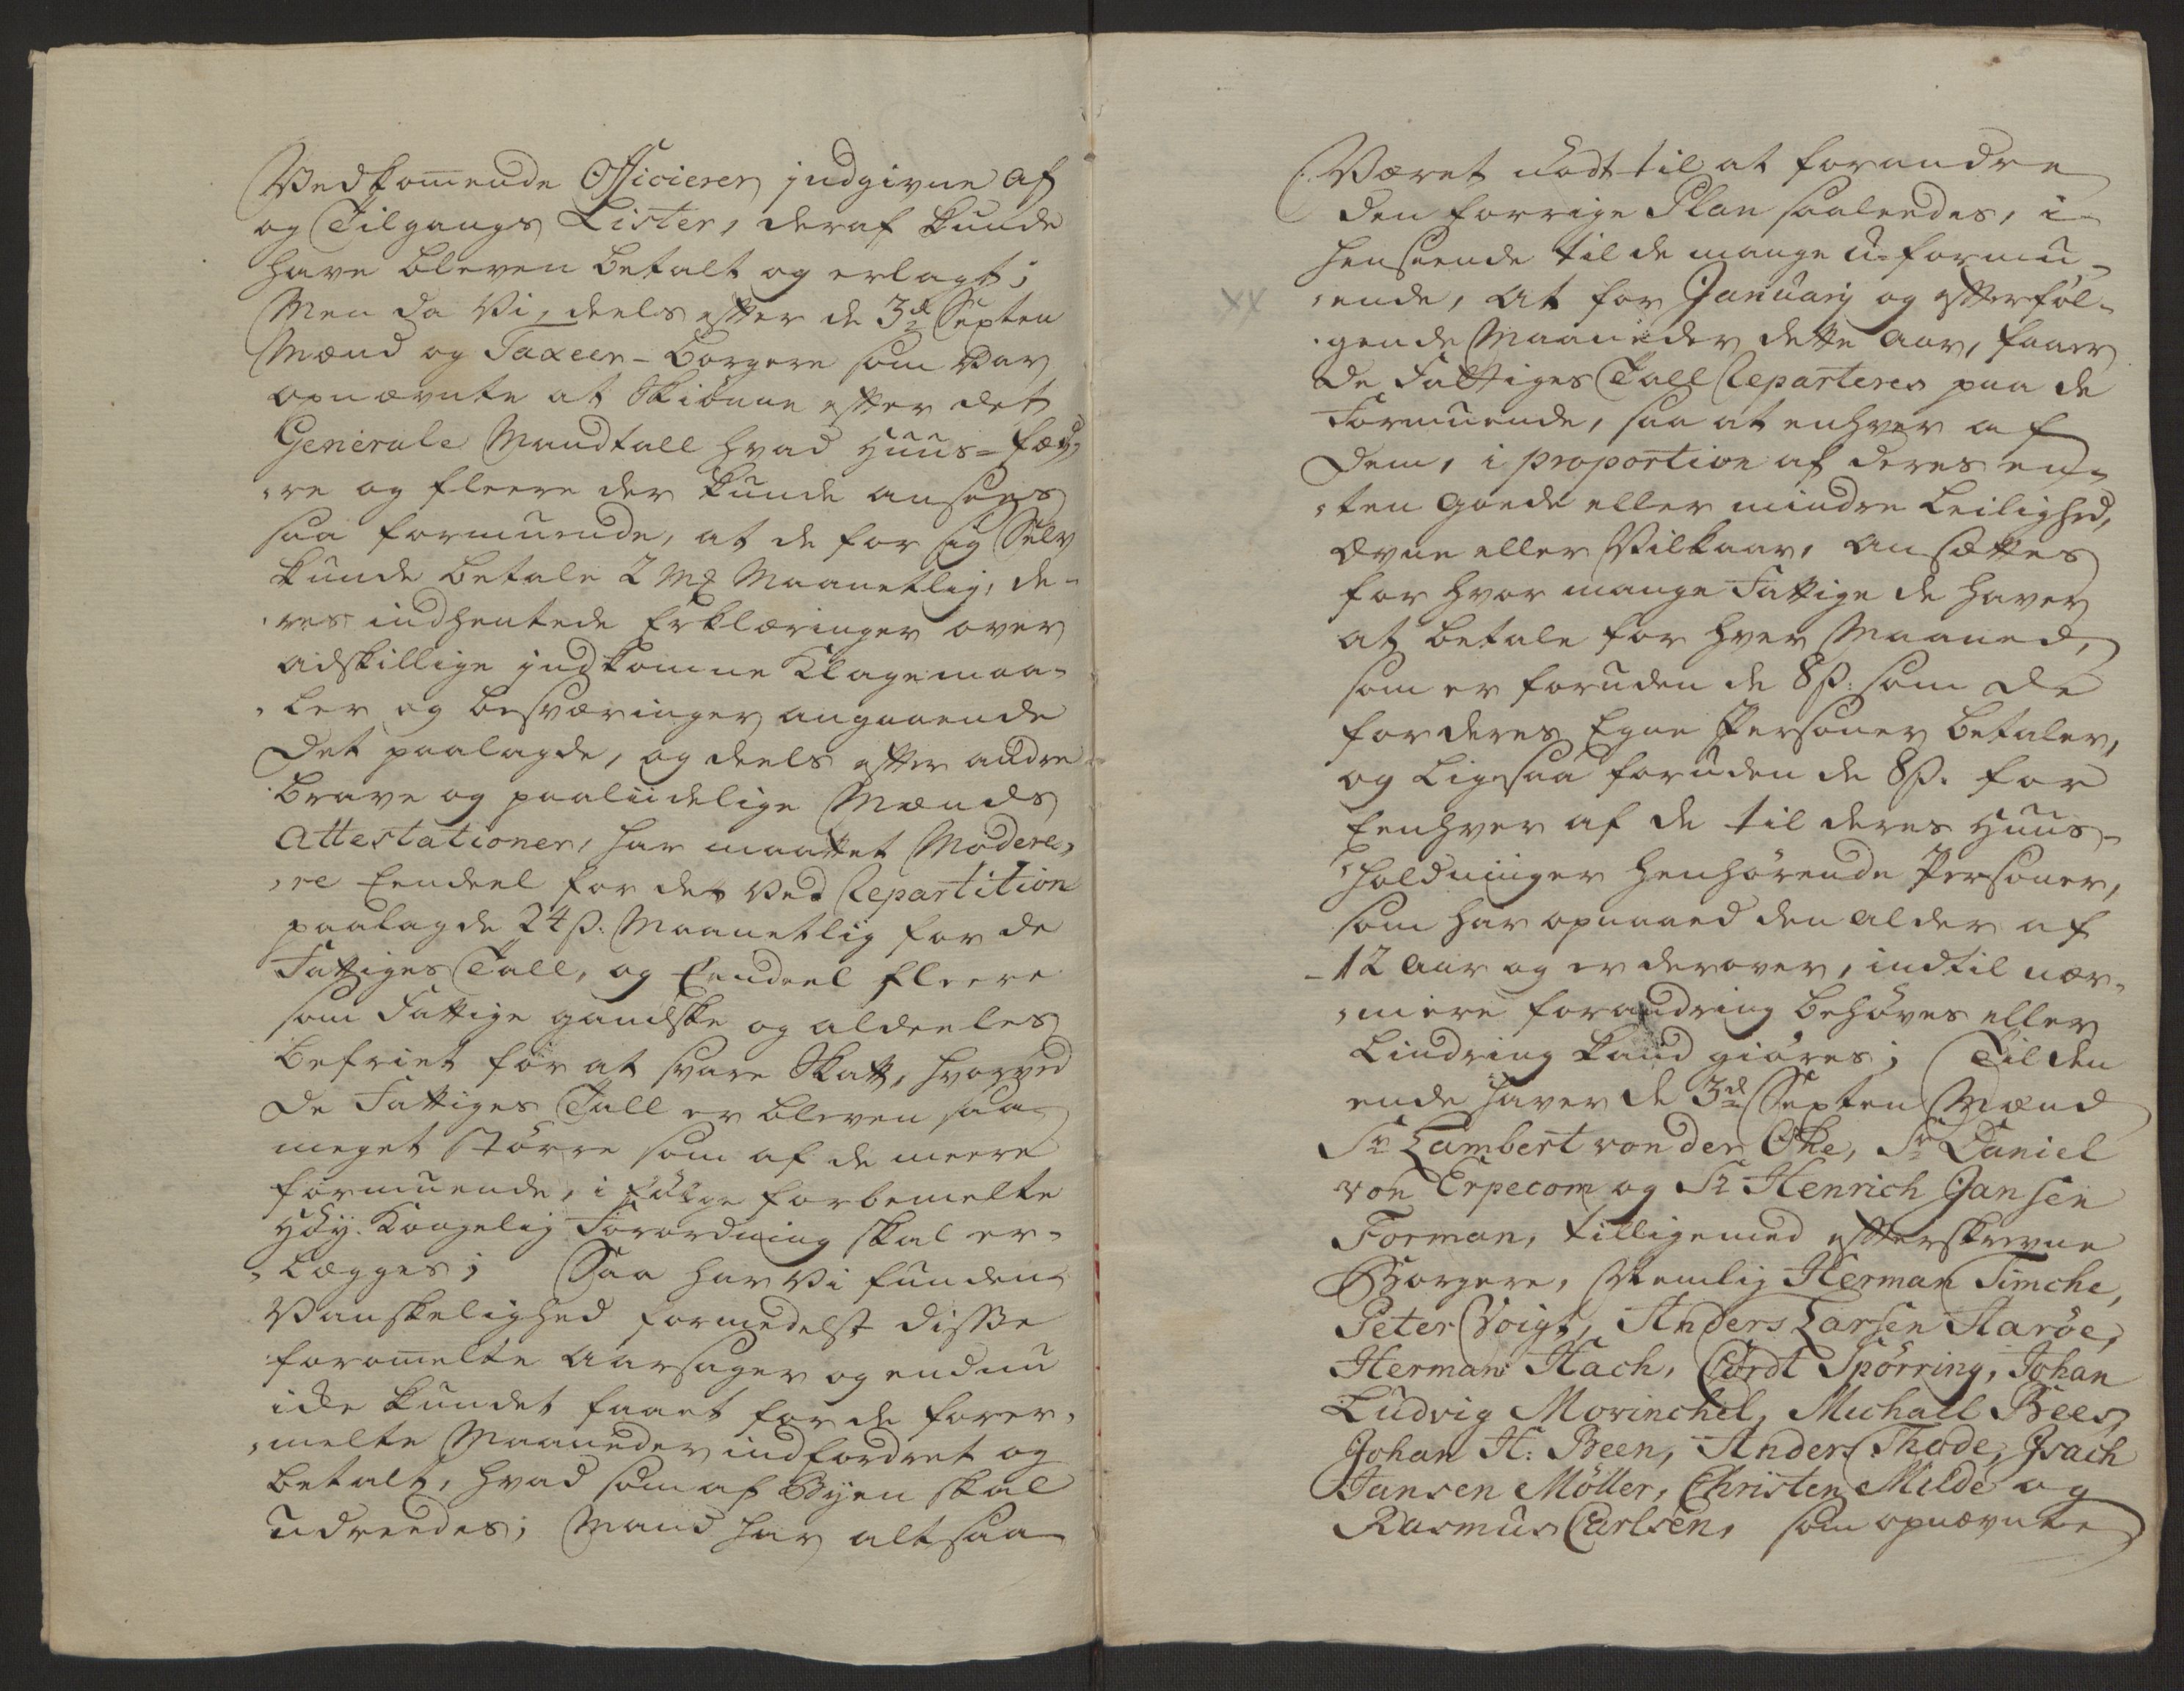 Vedkomende Officierer jndgivne af
og Tilgangs Lister, deraf kunde
have bleven betalt og erlagt;
Men da Vi, deels efter de 3de Septen
Mænd og Taxeer-borgere som var
opnævnte at Skiönne efter det
Generale Mandtall hvad Huus-fæd,
,re og fleere der kunde ansees
saa formuende, at de for sig Selv
kunde betale 2 Mk Maanetlig, de-
,res indhentede Erklæringer over
adskillige jndkomne Klagemaa-
,ler og besværinger angaaende
Det paalagde, og deels efter andre
brave og paaliidelige Mænds
Attestationer, har maattet Modere,
,re Eendeel for det ved Repartition
paalagde 24 ß. Maanetlig for de
Fattiges Tall, og Eendeel fleere
som Fattige gandske og aldeeles
befriet for at svare Skatt, hvorved
De Fattiges Tall er bleven saa
meget större som af de meere
formuende, i fölge forbemelte
Höy. Kongelig Forordning skal er-
,lægges; Saa har Vi funden
Vanskelighed formedelst disse
foromelte Aarsager og endnu
icke kundet faaet for de forer,
,melte Maaneder indfordret og
betalt, hvad som af Byen skal
udreedes; Mand har altsaa
Været nödt til at forandre
den forrige Plan saaleedes, i
henseende til de mange u-formu-
,ende, At for January og efterföl-
,gende Maaneder dette Aar, faaer
de Fattiges Tall Reparteres paa de
Formuende, saa at enhver af
Dem, i proportion af deres en-
,ten goede eller mindre Leilighed,
Evne eller Vilkaar, Ansættes
for hvor mange Fattige de haver
at betale for hver Maaned,
som er foruden de 8 ß. som de
for deres Egne Personer betaler,
og Ligesaa foruden de 8 ß. for
Eenhver af de til deres Huus-
,holdninger henhörende Personer,
som har opnaaed den Alder af
12 Aar og er derover, indtil nær-
,mere forandring behöves eller
Lindring kand giöres; Til den
ende haver de 3de Septen Mænd
Sr Lambert von der Ohe, Sr Daniel
von Erpecom og Sr Henrich Jansen
Forman, tilligemed efterskrevne
Borgere, Nemlig Herman Timche,
Peter Voigt, Anders Larsen Aaröe,
Herman Hach, Cordt Spörring, Johan
Ludvig Morinchel, Michael Bees,
Johan H: Been, Anders Thode, Isach
Jansen Möller, Christen Milde og
Rasmus Carlsen, som opnævnte